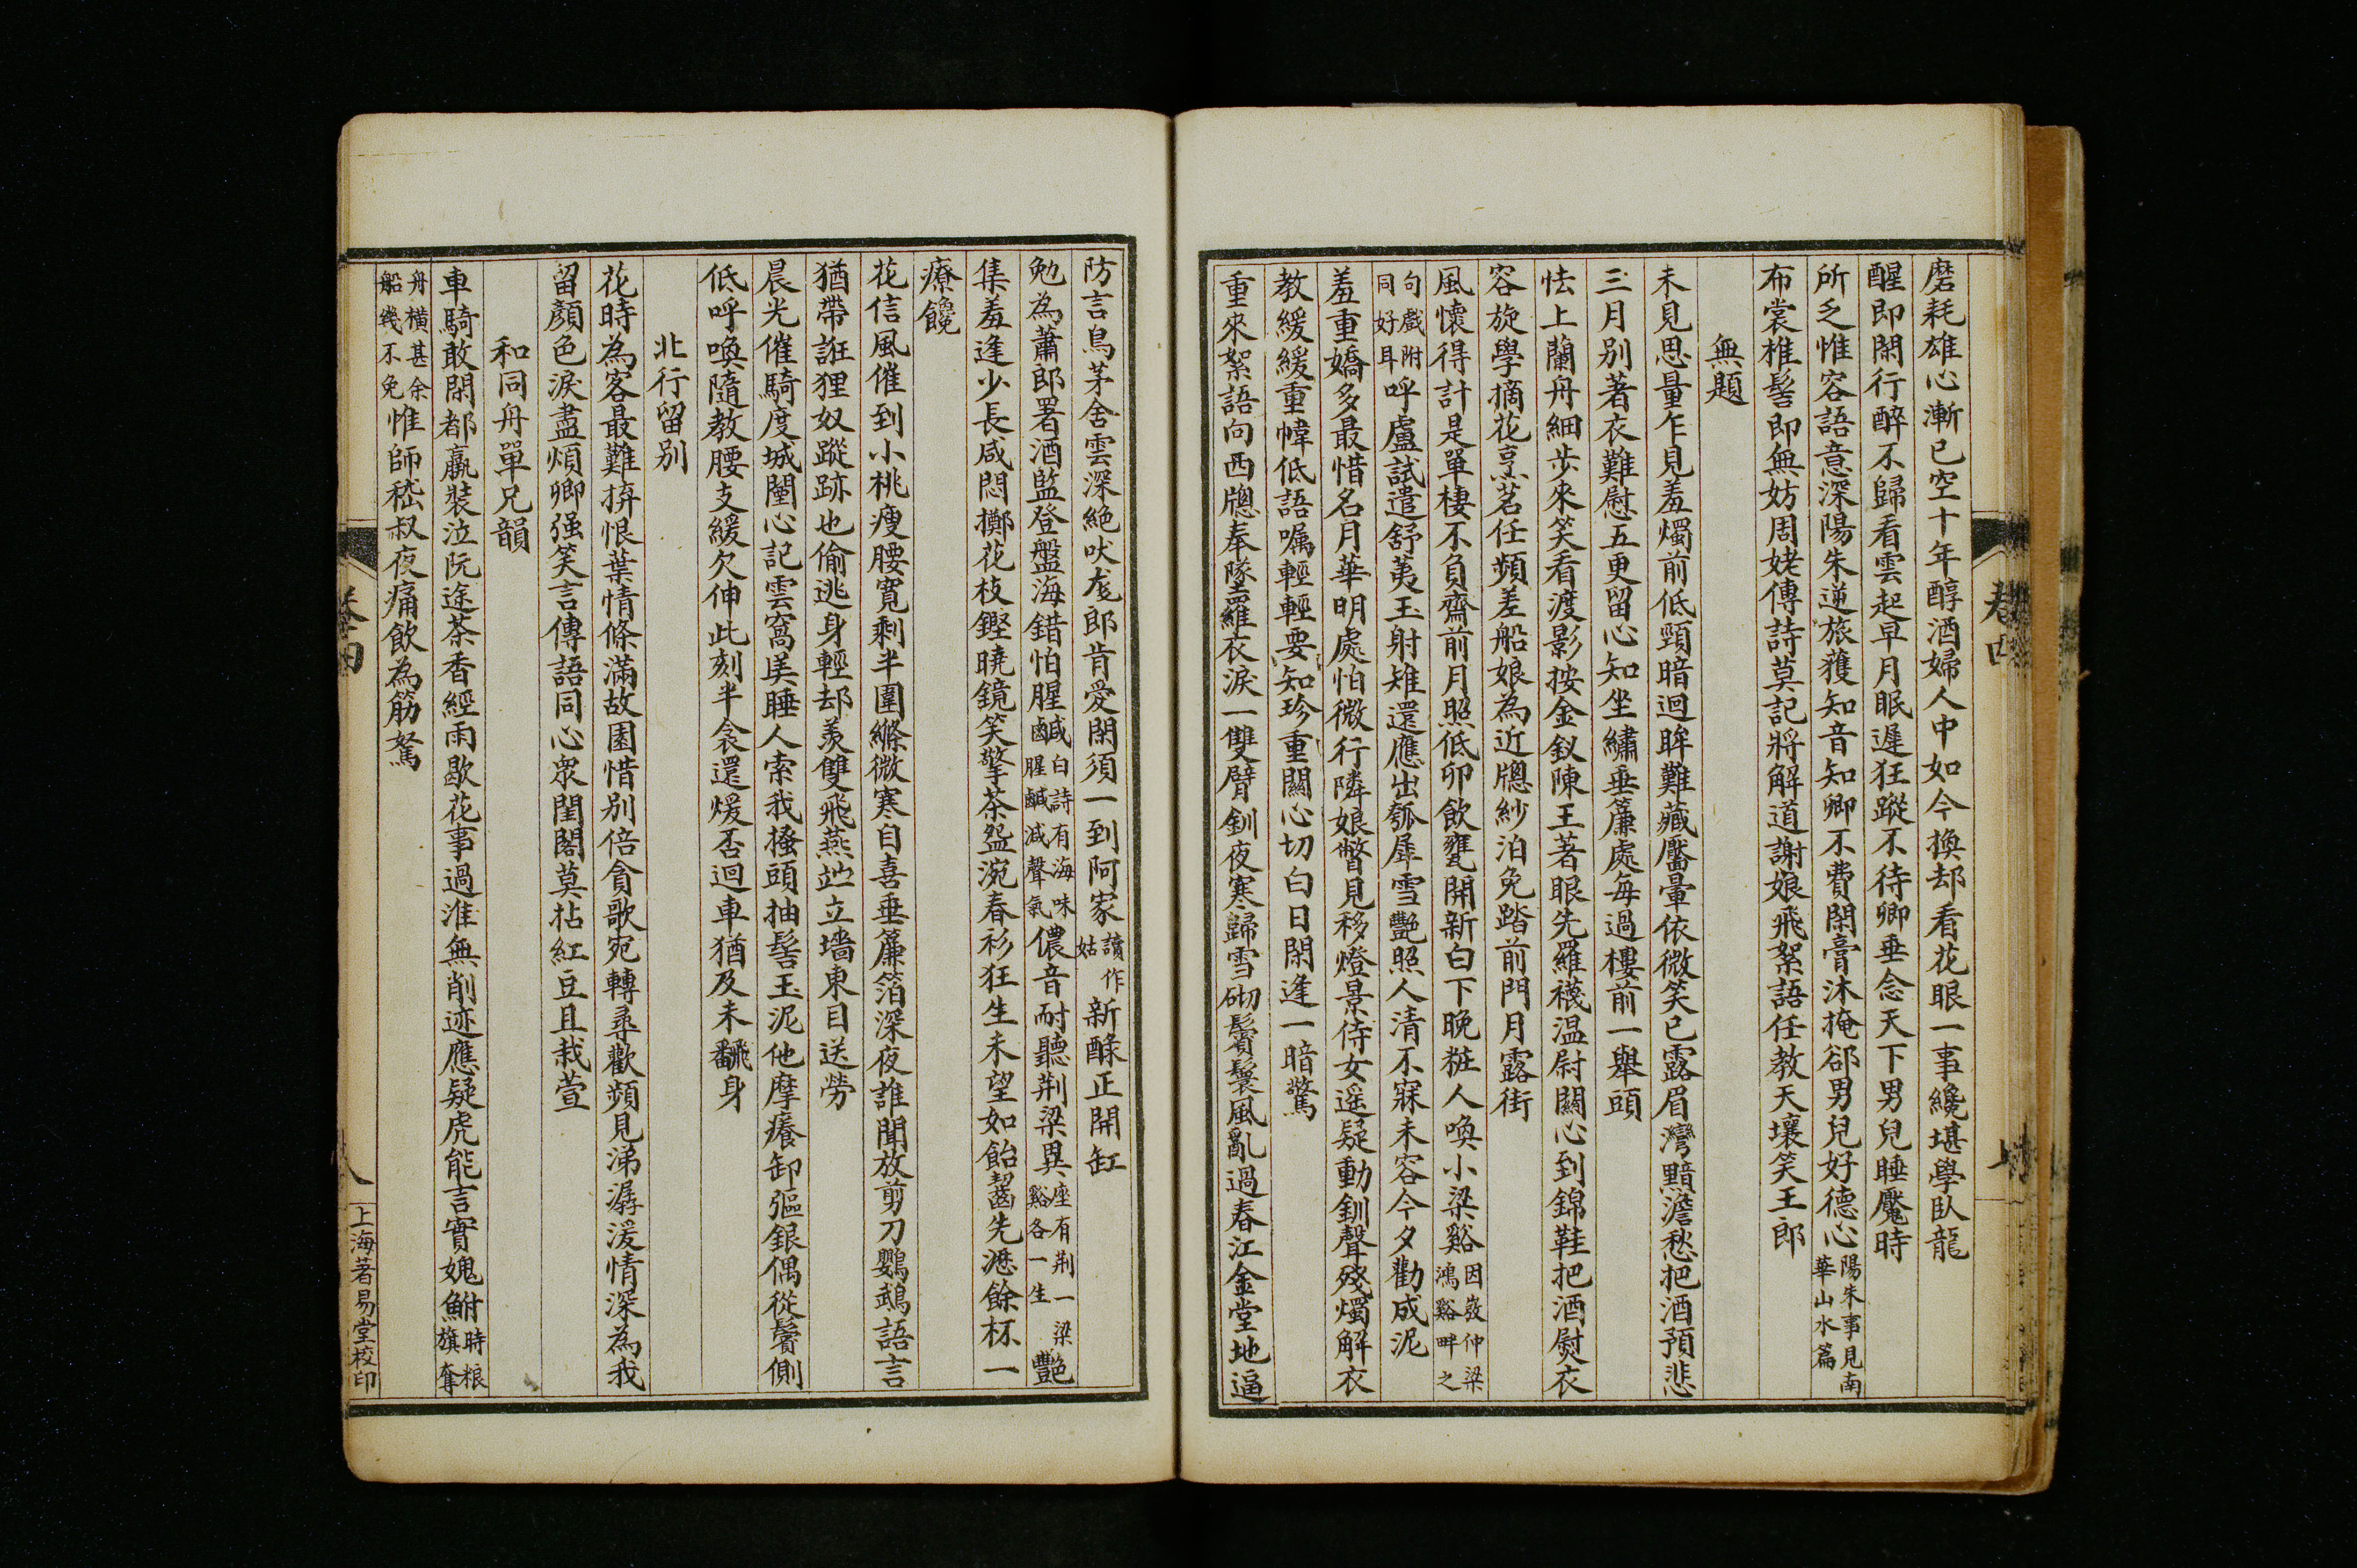 磨耗雄心漸已空十年醇酒婦人中如今換却看花眼一事纔堪學臥龍
醒即閑行醉不歸看雲起早月眠遲狂蹤不待卿垂念天下男兒睡魘時
所乏惟容語意深陽朱逆旅獲知音知卿不費閑膏沐掩郤男兒好德心陽朱事見南華山水篇
布裳椎髻即無妨周姥傳詩莫記將解道謝娘飛絮語任教天壤笑王郎
無題
未見思量乍見羞燭前低頸暗迴眸難藏靨暈依微笑已露眉灣黯澹愁把酒預悲
三月別著衣難慰五更留心知坐繡垂簾處每過樓前一舉頭
怯上蘭舟細步來笑看渡影按金釵陳王著眼先羅襪溫尉關心到錦鞋把酒熨衣
容旋學摘花烹茗任頻差船娘為近牕紗泊免踏前門月露街
風懷得計是單棲不負齋前月照低卯飲甕開新白下晚粧人喚小梁谿因嶅仲梁鴻谿畔之
句戲附同好耳呼盧試遣舒荑玉射雉還應出瓠犀雪艷照人清不寐未容今夕勸成泥
羞重嬌多最惜名月華明處怕微行隣娘瞥見移燈景侍女遙疑動釧聲殘燭解衣
教緩緩重幃低語囑輕輕要知珍重關心切白日閑逢一暗驚
重來絮語向西牕奉墜羅衣淚一雙臂釧夜寒歸雪砌鬢鬟風亂過春江金堂地逼
卷四
防言鳥茅舍雲深絕吠尨郎肯愛閑須一到阿家讀作姑新醁正開缸
勉為蕭郎署酒監登盤海錯怕腥鹹白詩有海味腥鹹減聲氣儂音耐聽荆梁異座有荆一梁谿各一生艷
集羞逢少長咸悶擲花枝鏗曉鏡笑擎茶盌涴春衫狂生未望如飴齧先遞餘杯一
療饞
花信風催到小桃瘦腰寬剩半圍縧微寒自喜垂簾箔深夜誰聞放剪刀鸚鵡語言
猶帶誑狸奴蹤跡也偷逃身輕却羨雙飛燕竝立墻東目送勞
晨光催騎度城闉心記雲窩美睡人索我搔頭抽髻玉泥他摩癢卸彄銀偶從鬢側
低呼喚隨教腰支緩欠伸此刻半衾還煖否迴車猶及未飜身
北行留別
花時為客最難拚恨葉情條滿故園惜別倍貪歌宛轉尋歡頻見涕潺湲情深為我
留顏色淚盡煩卿强笑言傳語同心眾閨閣莫拈紅豆且栽萱
和同舟單兄韻
車騎敢閑都羸裝泣阮途茶香經雨歇花事過淮無削迹應疑虎能言實媿鮒時粮旗奪
舟橫甚余船幾不免惟師嵇叔夜痛飲為筋駑
卷四
八
上海著易堂校印